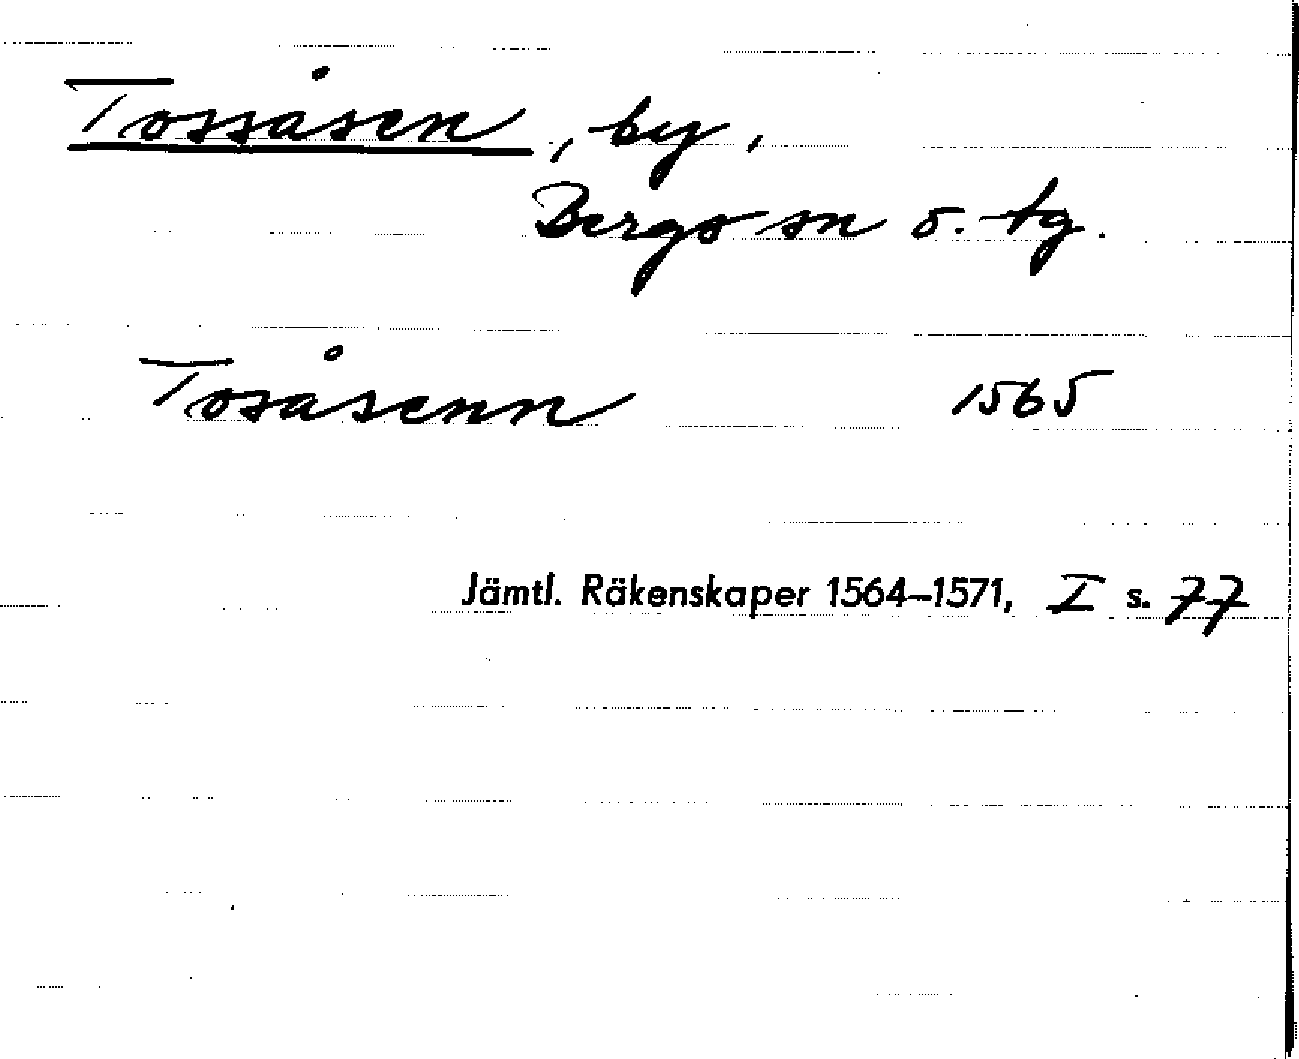 Tossåsen, by,
Bergs sn o. tg.
Tosåsenn 1565
Jämtl. Räkenskaper 1564–1571, I s. 77